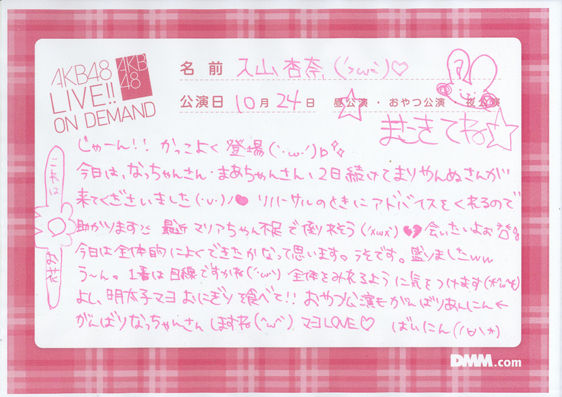 AKB48
LIVE!!
ON DEMAND
AKB
48
名前 入山杏奈 (´>ω<`)♡
公演日 10月24日 昼公演・おやつ公演・夜公演
またきてね☆
じゃーん!! かっこよく登場(´・ω・`)
今日は、なっちゃんさん・まあちゃんさん、2日続けてまりやんぬさんが
来てくださいました(´・ω・`)♥ リハーサルのときにアドバイスをくれるので
助かります 最近マリアちゃん不足で倒れそう(´xωx`)💔 会いたいよぉ
今日は全体的によくできたかなって思います。うそです。盛りましたww
う〜ん。1番は目線ですかね(´・ω・`) 全体をみれるように気をつけます
よし、明太子マヨおにぎり食べて!! おやつ公演もがんばりあんにん←
がんばりなっちゃんさんしますね(^ω^) マヨLOVE♡ ばいにん
これは
お花
DMM.com